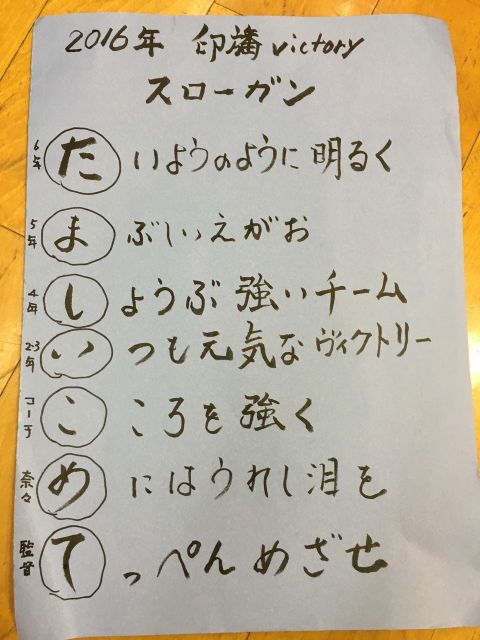 2016年 印旛 victory
スローガン
6年 たいようのように明るく
5年 まぶしいえがお
4年 しょうぶ強いチーム
2・3年 いつも元気なヴィクトリー
コーチ こころを強く
奈々 めにはうれし泪を
監督 てっぺんめざせ